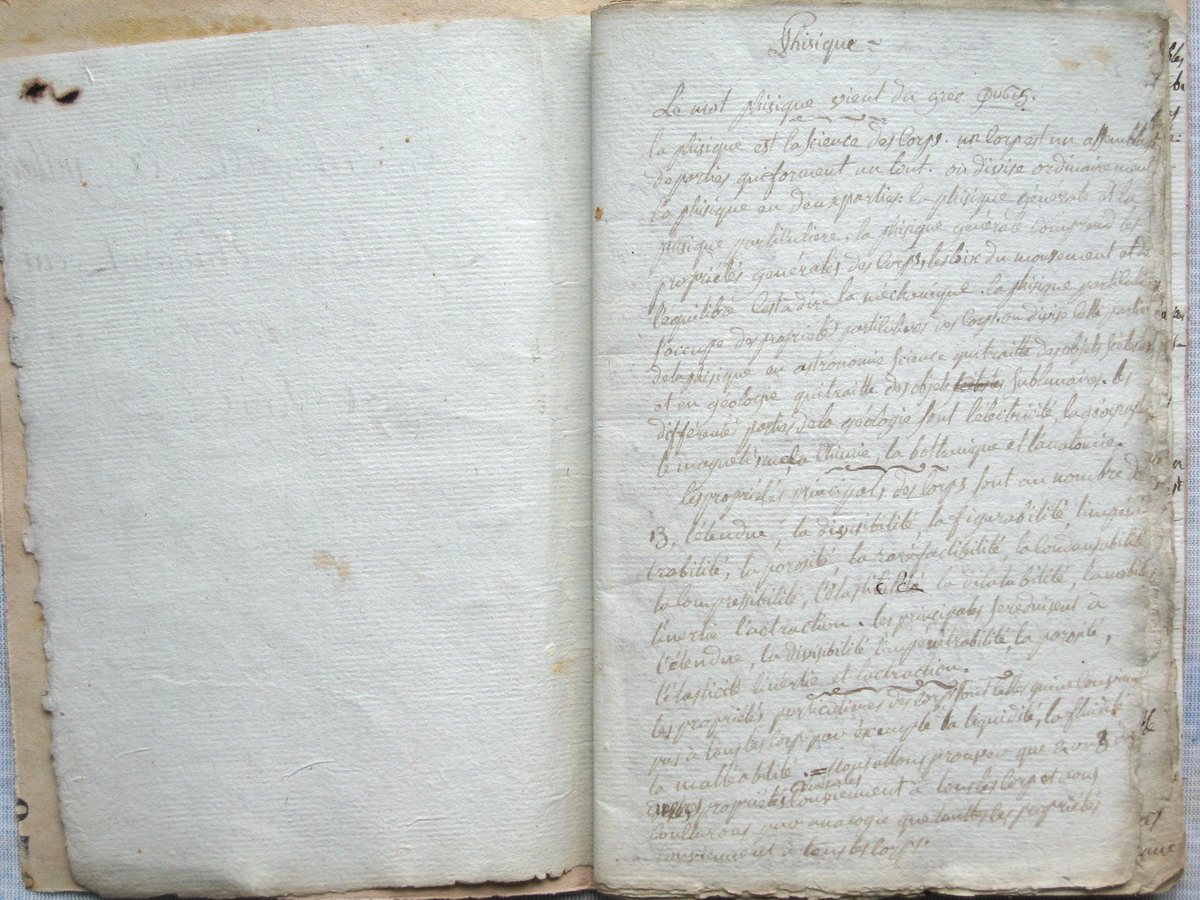 Phisique =
Le mot phisique vient du grec φυσις.
la phisique est la science des Corps. un Corp est un assembla
de parties qui forment un tout. on divise ordinairement
la phisique en deux parties: la phisique générale et la
phisique particuliere. la phisique générale comprend les
propriétés générales des Corps, les loix du mouvement et de
l'equilibre Cest a dire la méchanique. la phisique particuliere
s'occupe des propriétés particulieres des Corps. on divise Cette partie
de la phisique en astronomie Science qui traitte des objets Célestes
et en géologie qui traitte des objets Célestes Sublunaires. les
différentes parties de la géologie sont l'électricité,
le magnétisme la Chimie, la bothanique et l'anatomie.
les propriétés principales des Corps sont au nombre de
13, l'étendue, la divisibilité, la figurabilité, l'impéné
trabilité, la porosité, la raréfactibilité, la Condensabilité
la Compressibilité, l'élasticité la dilatabilité, la mobilité
l'inertie l'actraction. les principales se reduisent à
l'étendue, la divisibilité l'impénétrabilité, la porosité,
l'élasticité l'inertie et l'actraction.
les propriétés particulieres des Corps sont Celles qui ne Conviennent
pas à tous les Corps par éxemple la liquidité, la fluidité
la malléabilité. = Nous allons prouver que
propriétés générales Conviennent à tous les Corps et nous
Conclurons par analogie que touttes les propriétés
Conviennent à tous les Corps.